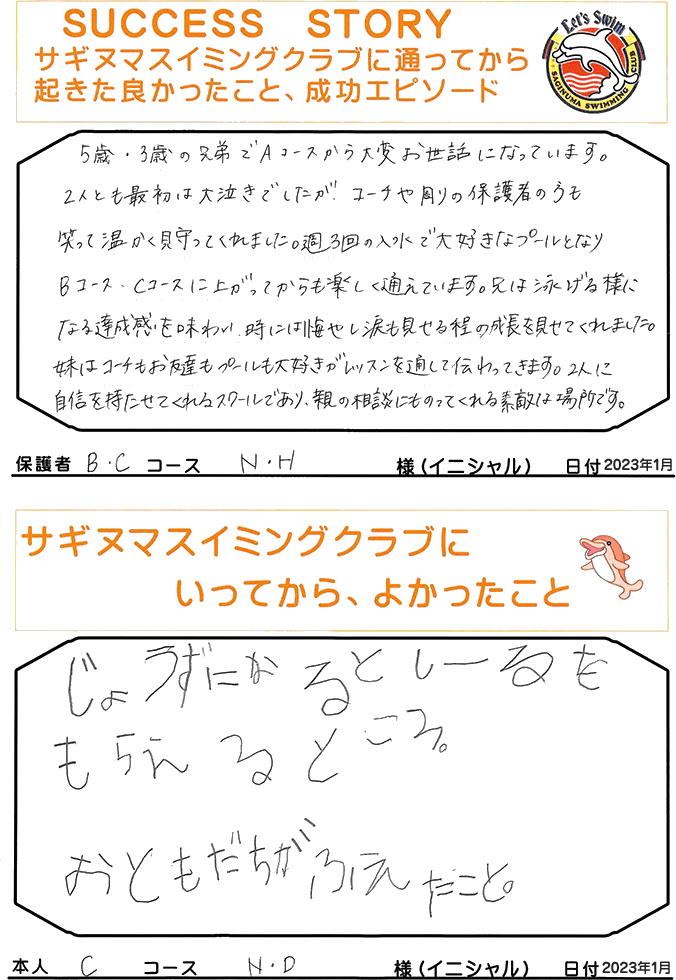 SUCCESS STORY
サギヌマスイミングクラブに通ってから
起きた良かったこと、成功エピソード
Let's Swim
SAGINUMA SWIMMING CLUB
5歳・3歳の兄弟でAコースから大変お世話になっています。
2人とも最初は大泣きでしたが、コーチや周りの保護者の方も
笑って温かく見守ってくれました。週3回の入水で大好きなプールとなり
Bコース・Cコースに上がってからも楽しく通えています。兄は泳げる様に
なる達成感を味わい、時には悔やし涙も見せる程の成長を見せてくれました。
妹はコーチもお友達もプールも大好きがレッスンを通して伝わってきます。2人に
自信を持たせてくれるスクールであり、親の相談にものってくれる素敵な場所です。
保護者 B・C コース N・H 様(イニシャル) 日付 2023年1月
サギヌマスイミングクラブに
いってから、よかったこと
じょうずになるとしーるを
もらえるところ。
おともだちがふえたこと。
本人 C コース N・D 様(イニシャル) 日付 2023年1月